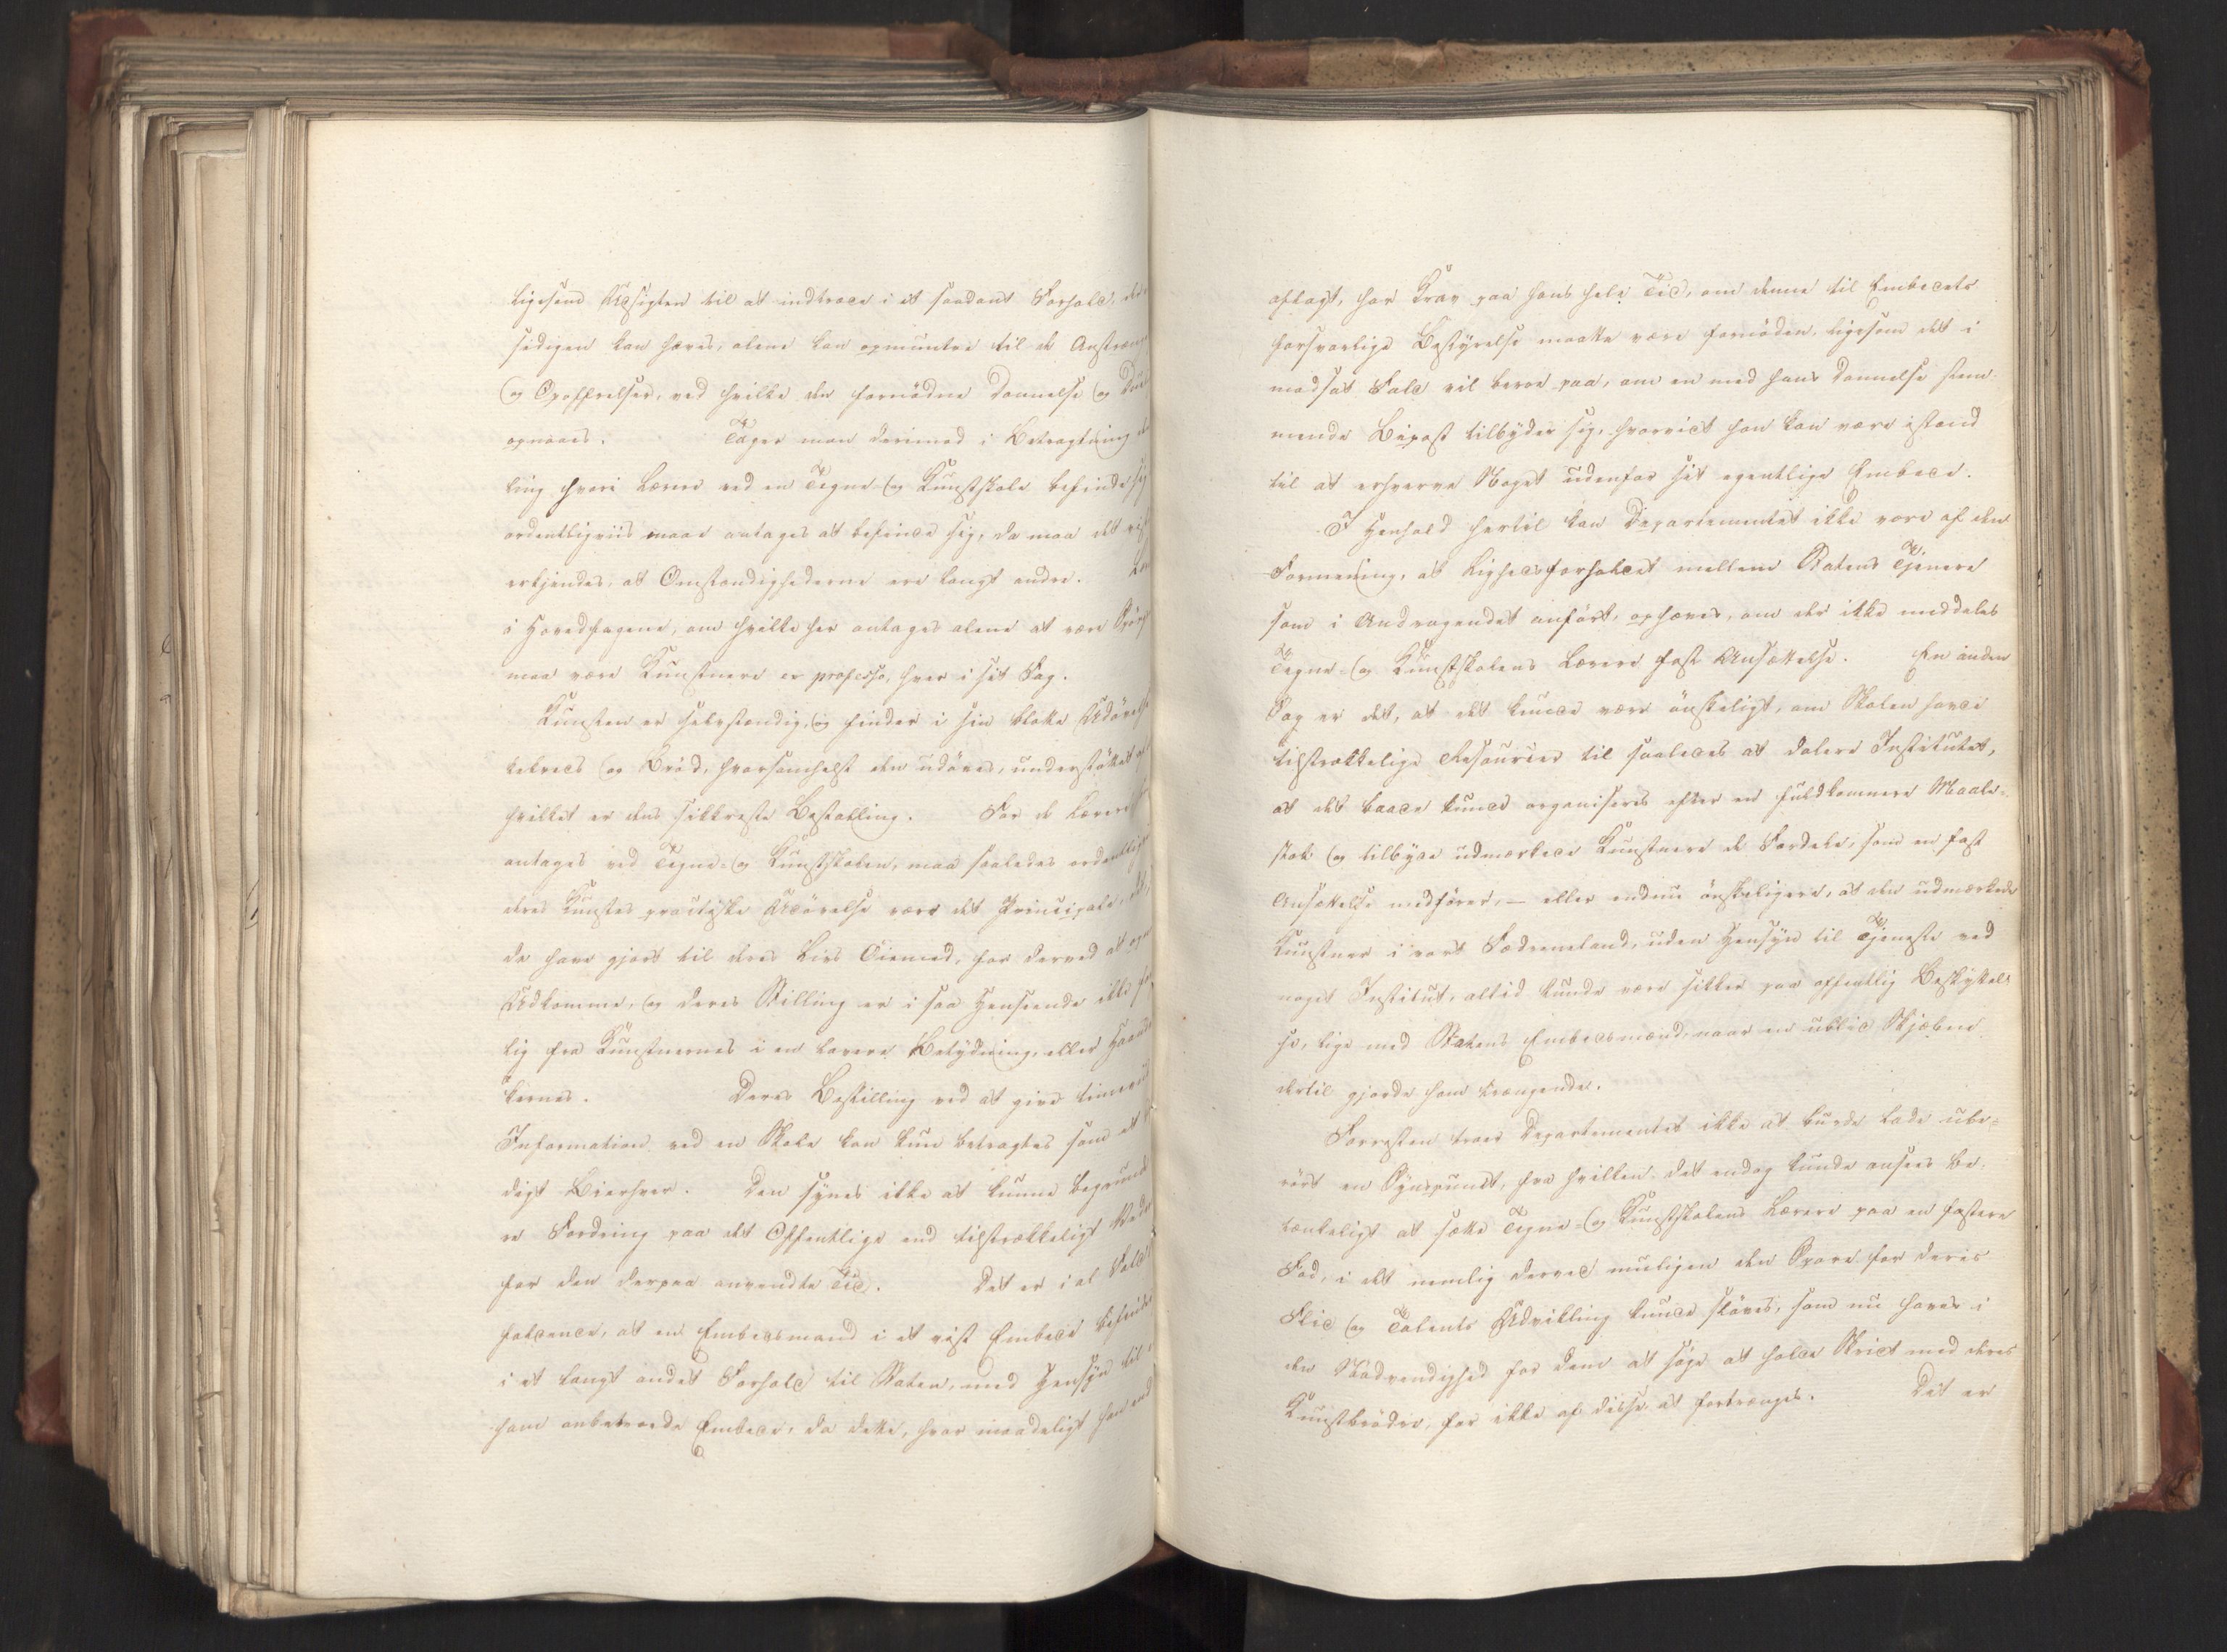 ligesom Udsigten til at indtræde i et saadant Forhold, der
sidigen kan hæves, alene kan opmuntre til de Anstræng
og Opoffrelser, ved hvilke den fornødne Dannelse og
opnaaes. Tages man derimod i Betragtning
ling hvori Lærere ved en Tegne- og Kunstskole befinde sig
ordentligviis maae antages at befinde sig, da maa det vist
erkjendes, at Omstændighederne ere langt andre.
i Hovedfagene, om hvilke her antages alene at være Spørgs
maa være Kunstnere ex professo, hver i sit Fag.
Kunsten er selvstændig, og finder i sin blotte Udøvelse
Levred og Brød, hvorsomhelst den udøves, understøttet af
hvilket er dens sikkreste Bestalling. For de Lærere
antages ved Tegne- og Kunstskolen, maa saaledes ordentlig
deres Kunstes practiske Udøvelse være det Principale,
de have gjort til deres Livs Øiemed, for derved at op
Udkomme, og deres Stilling er i saa Henseende ikke
lig fra Kunstnernes i en lavere Betydning, eller Haand
kernes. Deres Bestilling ved at give timeviis
Information ved en Skole kan kun betragtes som et
digt Bierhver. Den synes ikke at kunne begrunde
re Fordring paa det Offentlige end tilstrækkeligt Veder
for den derpaa anvendte Tid. Det er i al Fald
holdende, at en Embedsmand i et vist Embede befinder
i et langt andet Forhold til Staten, med Hensyn til
ham anbetroede Embede, da dette, hvor maadeligt han end
aflagt, har Krav paa hans hele Tid, om denne til Embedets
forsvarlige Bestyrelse maatte være fornøden, ligesom det i
modsat Fald vil beroe paa, om en med hans Dannelse stem-
mende Bipost tilbyder sig, hvorvidt han kan være istand
til at erhverve Noget udenfor sit egentlige Embede.
I Henhold hertil kan Departementet ikke være af den
Formening, at Lighedsforholdet mellem Statens Tjenere
som i Andragendet anført, ophæves, om der ikke meddeles
Tegne- og Kunstskolens Lærere fast Ansættelse. En anden
Sag er det, at det kunde være ønskeligt, om Skolen havde
tilstrækkelige Resourcer til saaledes at dotere Institutet,
at det baade kunde organiseres efter en fuldkomnere Maale-
stok og tilbyde udmærkede Kunstnere de Fordele, som en fast
Ansættelse medfører, — eller endnu ønskeligere, at den udmærkede
Kunstner i vort Fædreneland, uden Hensyn til Tjeneste ved
noget Institut, altid kunde være sikker paa offentlig Beskyttel-
se, lige med Statens Embedsmænd, naar en ublid Skjæbne
dertil gjorde ham trængende.
Forresten troer Departementet ikke at burde lade ube-
rørt en Synspunct, fra hvilken det endog kunde ansees be-
tænkeligt at sætte Tegne- og Kunstskolens Lærere paa en fastere
Fod, i det nemlig derved muligen den Spore for deres
Flid og Talents Udvikling kunde sløves, som nu haves i
den Nødvendighed for dem at søge at holde Skridt med deres
Kunstbrødre, for ikke af disse at fortrænges. Det er